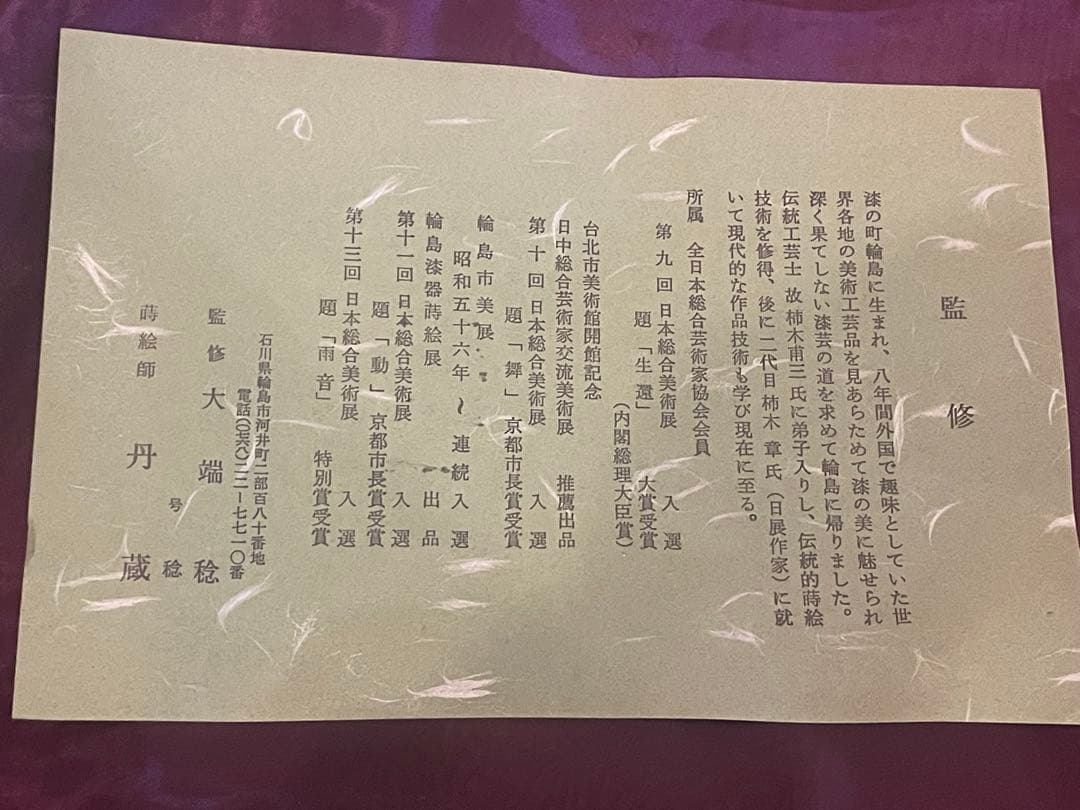 監修
漆の町輪島に生まれ、八年間外国で趣味としていた世
界各地の美術工芸品を見あらためて漆の美に魅せられ
深く果てしない漆芸の道を求めて輪島に帰りました。
伝統工芸士 故 柿木甫三氏に弟子入りし、伝統的蒔絵
技術を修得、後に二代目 柿木 章氏（日展作家）に就
いて現代的な作品技術も学び現在に至る。
所属 全日本総合芸術家協会会員
第九回 日本総合美術展 入選
題「生還」 大賞受賞
（内閣総理大臣賞）
台北市美術館開館記念
日中総合芸術家交流美術展 推薦出品
第十回 日本総合美術展 入選
題「舞」 京都市長賞受賞
輪島市美展
昭和五十六年〜 連続入選
輪島漆器蒔絵展 出品
第十一回 日本総合美術展 入選
題「動」 京都市長賞受賞
第十三回 日本総合美術展 入選
題「雨音」 特別賞受賞
石川県輪島市河井町二部百八十番地
電話(〇七六八)二二ー七七一〇番
監修 大端 稔
号 稔
蒔絵師 丹蔵